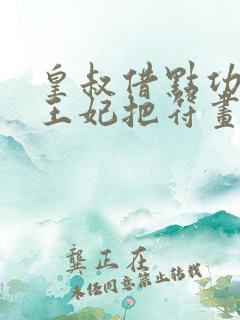 皇叔借點功
王妃把符畫
龔正在
未經同意禁止轉載